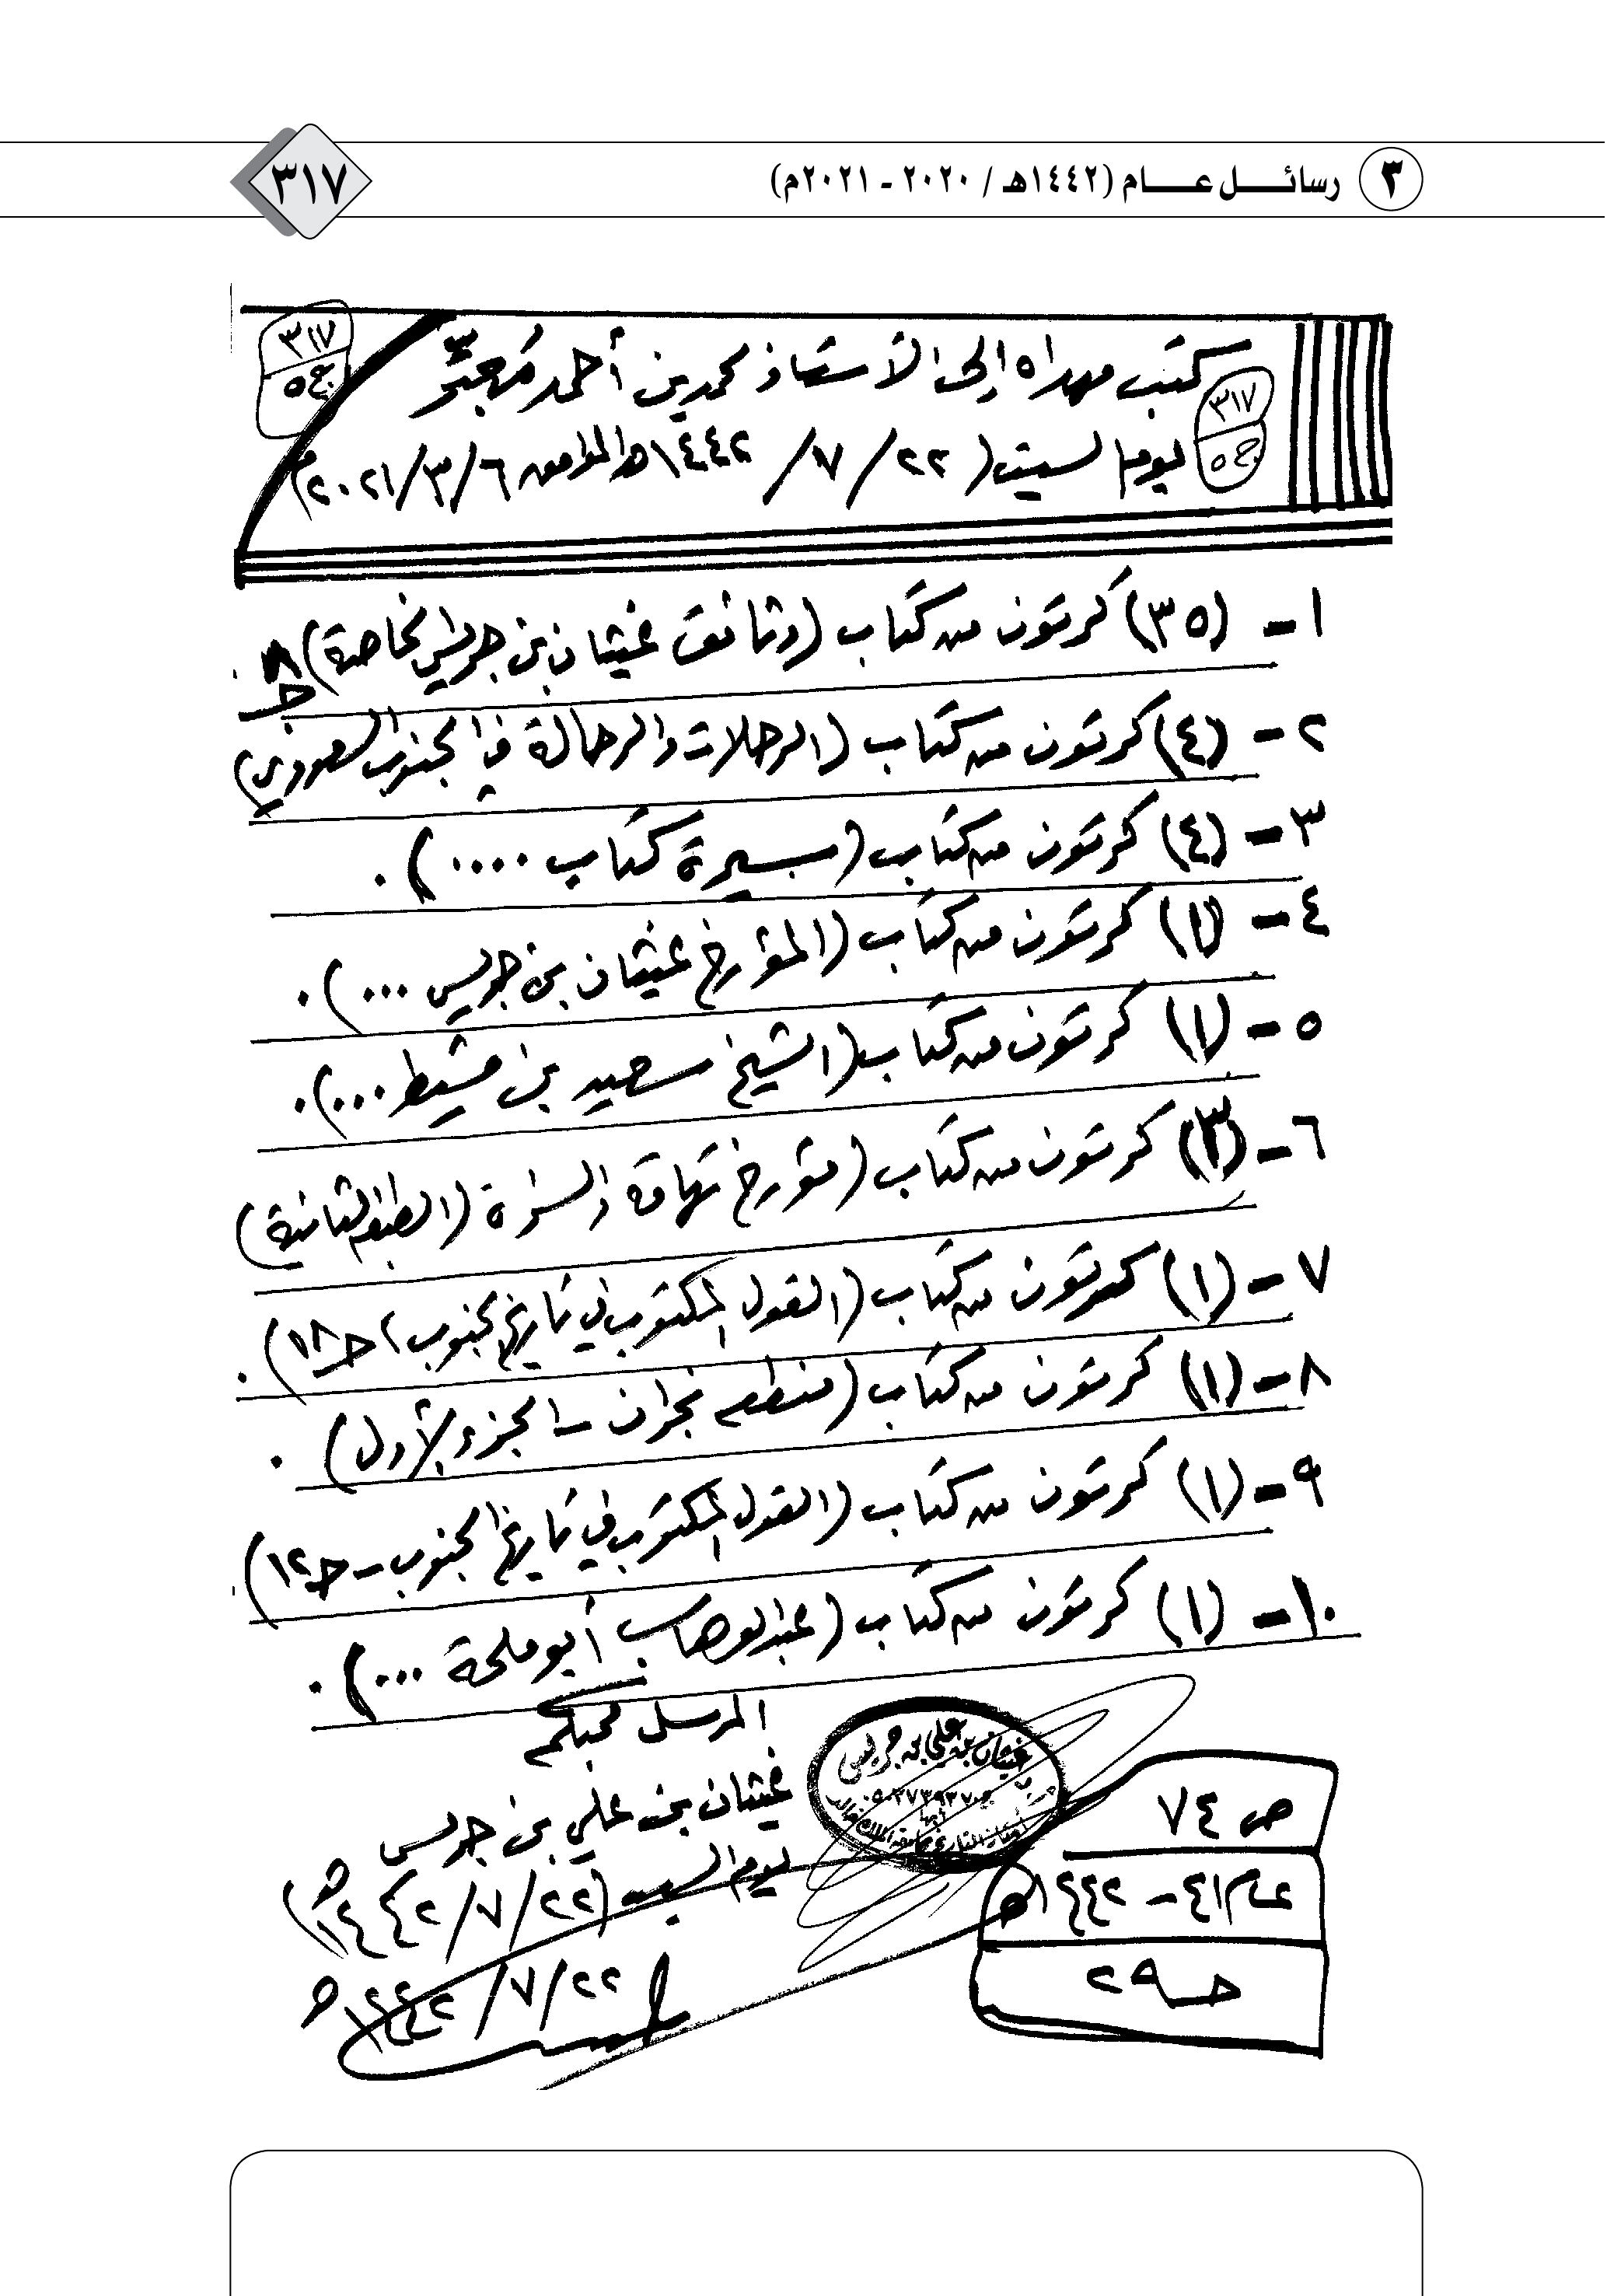 ٣ رسائل عام (١٤٤٢هـ / ٢٠٢٠ - ٢٠٢١م)
٣١٧
٣١٧
ج٥
كتب مهداه إلى الأستاذ محمد بن أحمد مُعبّر
٣١٧
ج٥
يوم السبت (٢٢/٧/١٤٤٢هـ الموافق ٦/٣/٢٠٢١م
١- (٣٥) كرتون من كتاب (وثائق غيثان بن جريس الخاصة) ج٨.
٢- (٤) كرتون من كتاب (الرحلات والرحالة في الجنوب السعودي)
٣- (٤) كرتون من كتاب (سيرة كتاب ....).
٤- (١) كرتون من كتاب (المؤرخ غيثان بن جريس ...).
٥- (١) كرتون من كتاب (الشيخ سعيد بن مشيط ...).
٦- (٣) كرتون من كتاب (مؤرخ تهامة والسراة (الطبعة الثانية)
٧- (١) كرتون من كتاب (القول المكتوب في تاريخ الجنوب، جـ١٨).
٨- (١) كرتون من كتاب (منطقة نجران - الجزء الأول).
٩- (١) كرتون من كتاب (القول المكتوب في تاريخ الجنوب - جـ١٢).
١٠- (١) كرتون من كتاب (عبدالوهاب أبو ملحة ...).
المرسل محبكم
غيثان بن علي بن جريس
يوم السبت (٢٢/٧/١٤٤٢هـ)
٢٢/٧/١٤٤٢هـ
غيثان بن علي بن جريس
أستاذ التاريخ بجامعة الملك خالد
ص ٧٤
عام ٤١ - ١٤٤٢هـ
جـ٢٩